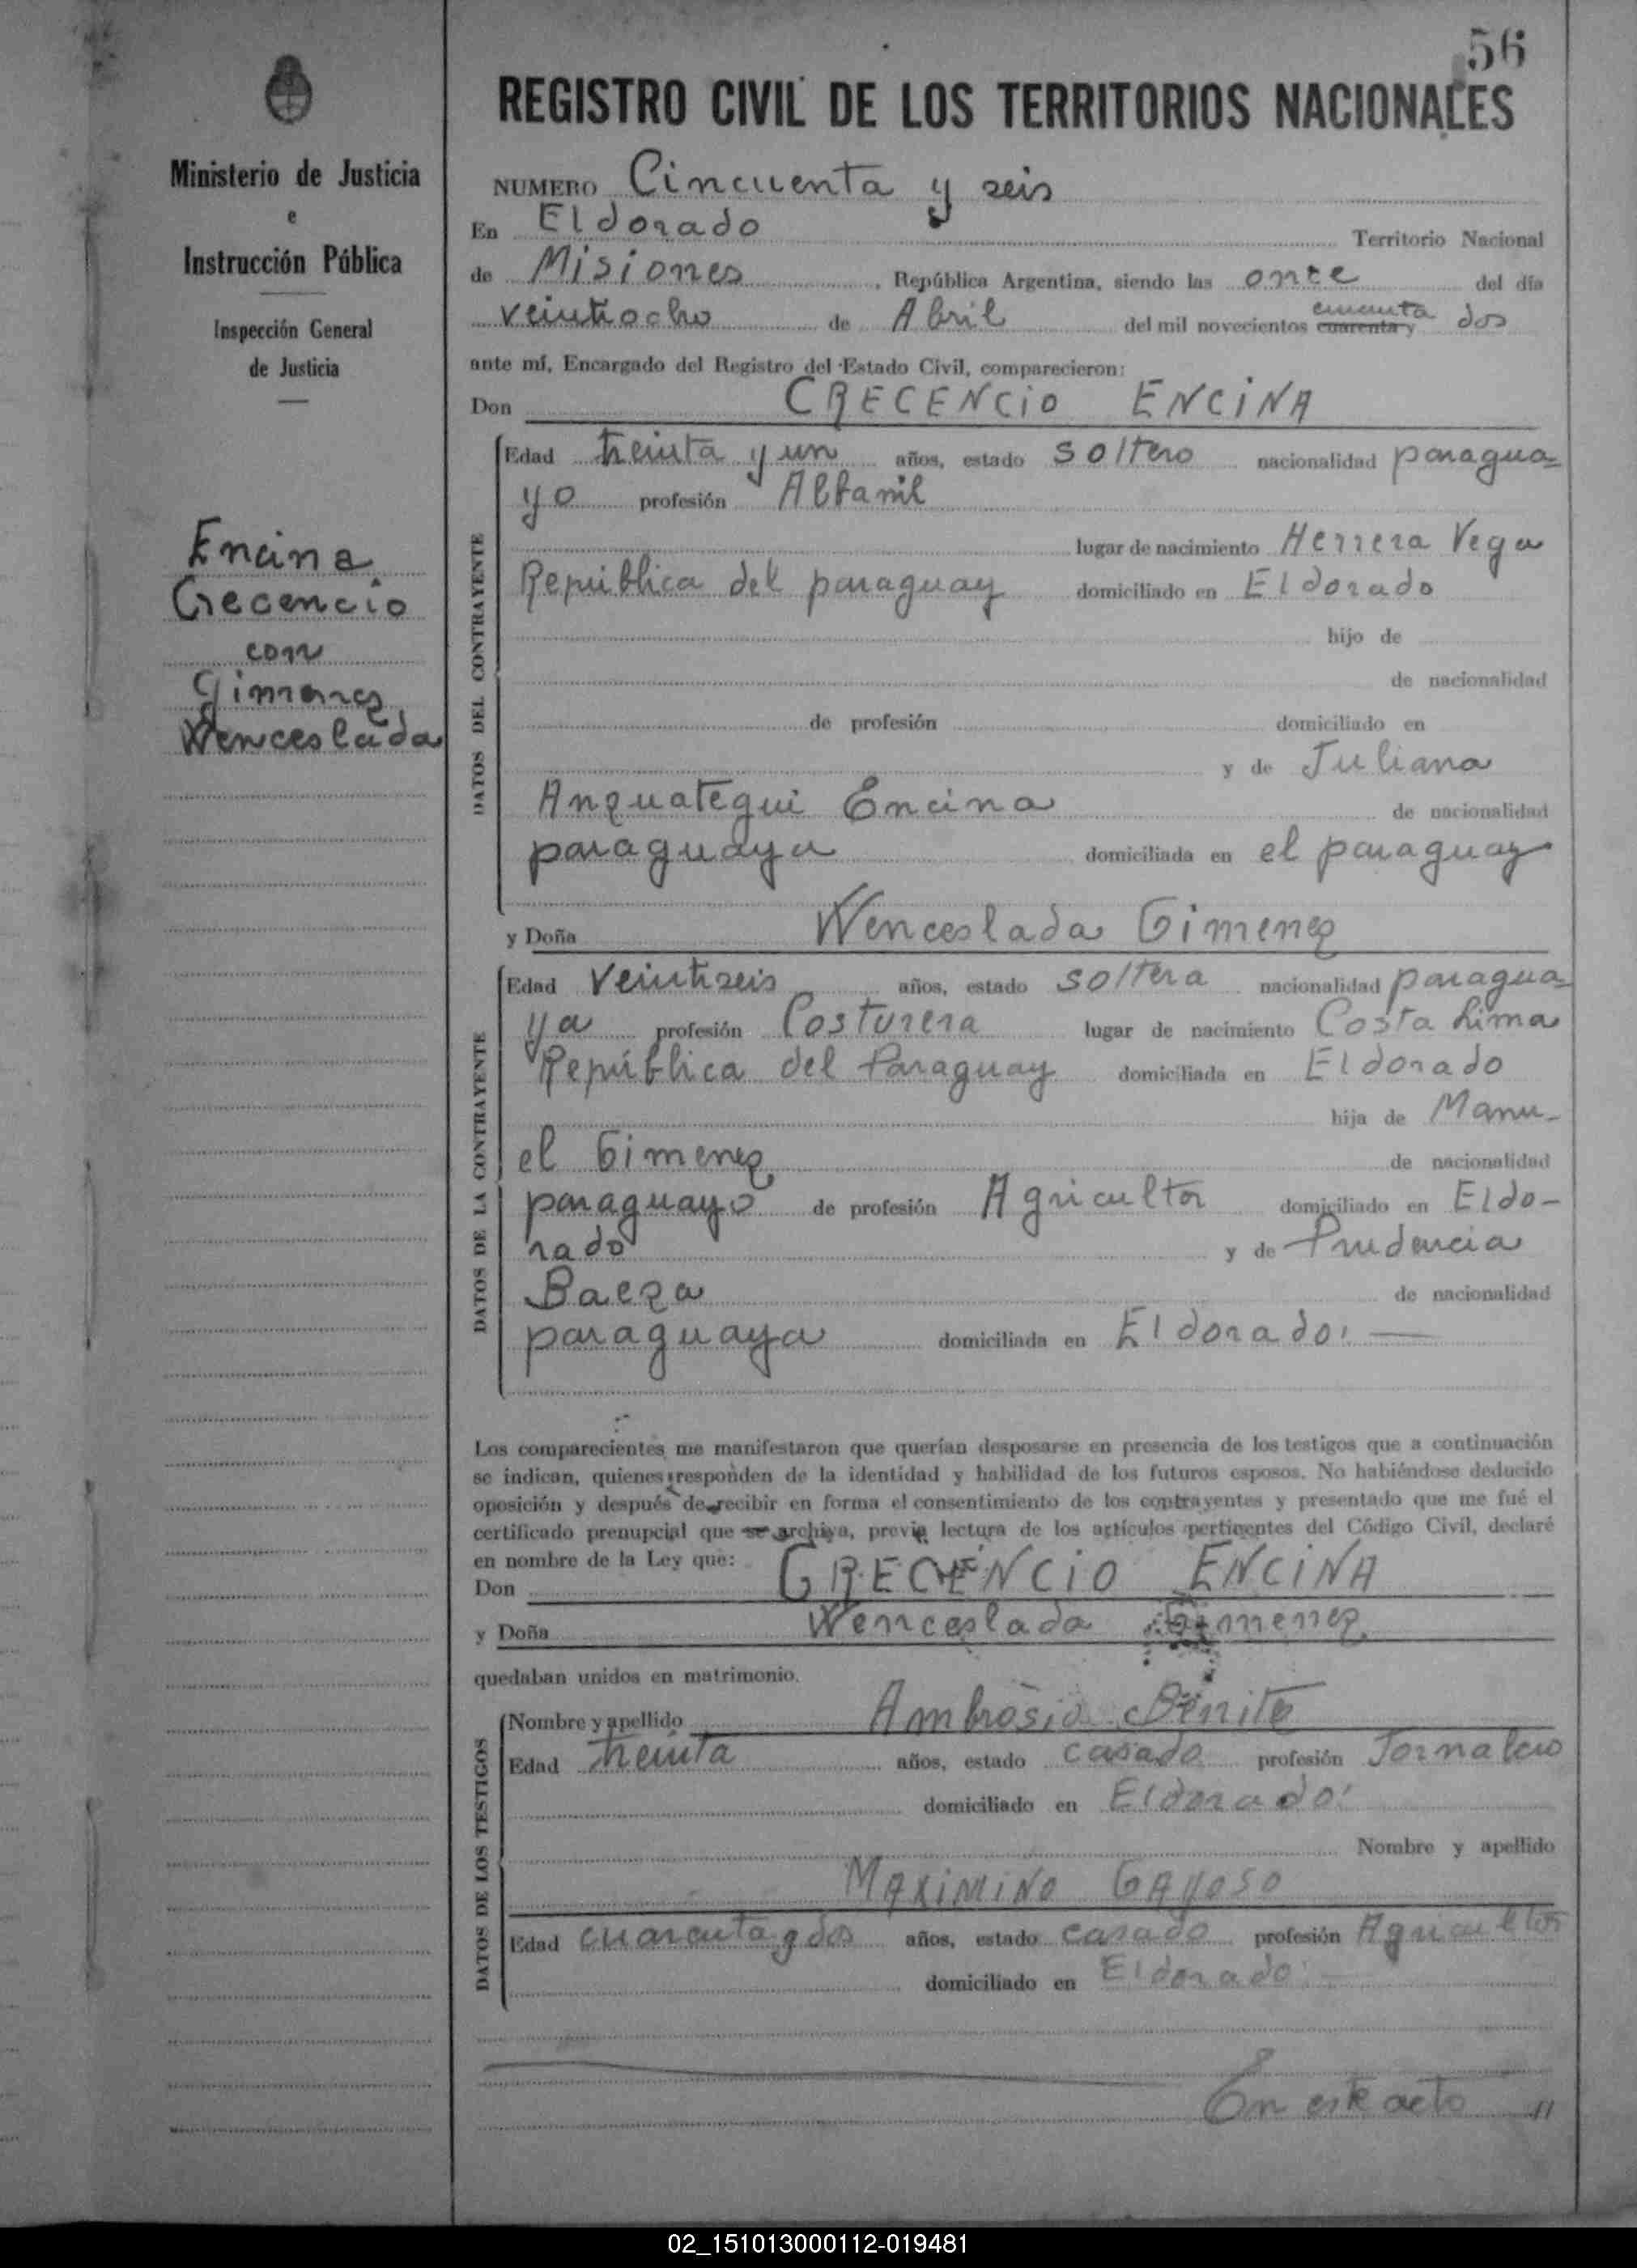 56
REGISTRO CIVIL DE LOS TERRITORIOS NACIONALES
Ministerio de Justicia
e
Instrucción Pública
Inspección General
de Justicia
Encina
Crecencio
con
Gimenez
Wenceslada
NUMERO Cincuenta y seis
En Eldorado Territorio Nacional
de Misiones, República Argentina, siendo las once del día
veintiocho de Abril del mil novecientos cuarenta y cincuenta dos
ante mí, Encargado del Registro del Estado Civil, comparecieron:
Don CRECENCIO ENCINA
DATOS DEL CONTRAYENTE
Edad treinta y un años, estado soltero nacionalidad paragua-
yo profesión Albanil
lugar de nacimiento Herrera Vega
República del paraguay domiciliado en Eldorado
hijo de
de nacionalidad
de profesión domiciliado en
y de Juliana
Anquategui Encina de nacionalidad
paraguaya domiciliada en el paraguay
y Doña Wenceslada Gimenez
DATOS DE LA CONTRAYENTE
Edad veintiseis años, estado soltera nacionalidad paragua-
ya profesión Costurera lugar de nacimiento Costa Lima
República del Paraguay domiciliada en Eldorado
hija de Manu-
el Gimenez de nacionalidad
paraguayo de profesión Agricultor domiciliado en Eldo-
rado y de Prudencia
Baeza de nacionalidad
paraguaya domiciliada en Eldorado.—
Los comparecientes me manifestaron que querían desposarse en presencia de los testigos que a continuación
se indican, quienes responden de la identidad y habilidad de los futuros esposos. No habiéndose deducido
oposición y después de recibir en forma el consentimiento de los contrayentes y presentado que me fué el
certificado prenupcial que se archiva, previa lectura de los artículos pertinentes del Código Civil, declaré
en nombre de la Ley que:
Don CRECENCIO ENCINA
y Doña Wenceslada Gimenez
quedaban unidos en matrimonio.
DATOS DE LOS TESTIGOS
Nombre y apellido Ambrosio Benite
Edad treinta años, estado casado profesión Jornalero
domiciliado en Eldorado.
Nombre y apellido
MAXIMINO GAYOSO
Edad cuarenta y dos años, estado casado profesión Agricultor
domiciliado en Eldorado.—
En este acto //
02_151013000112-019481